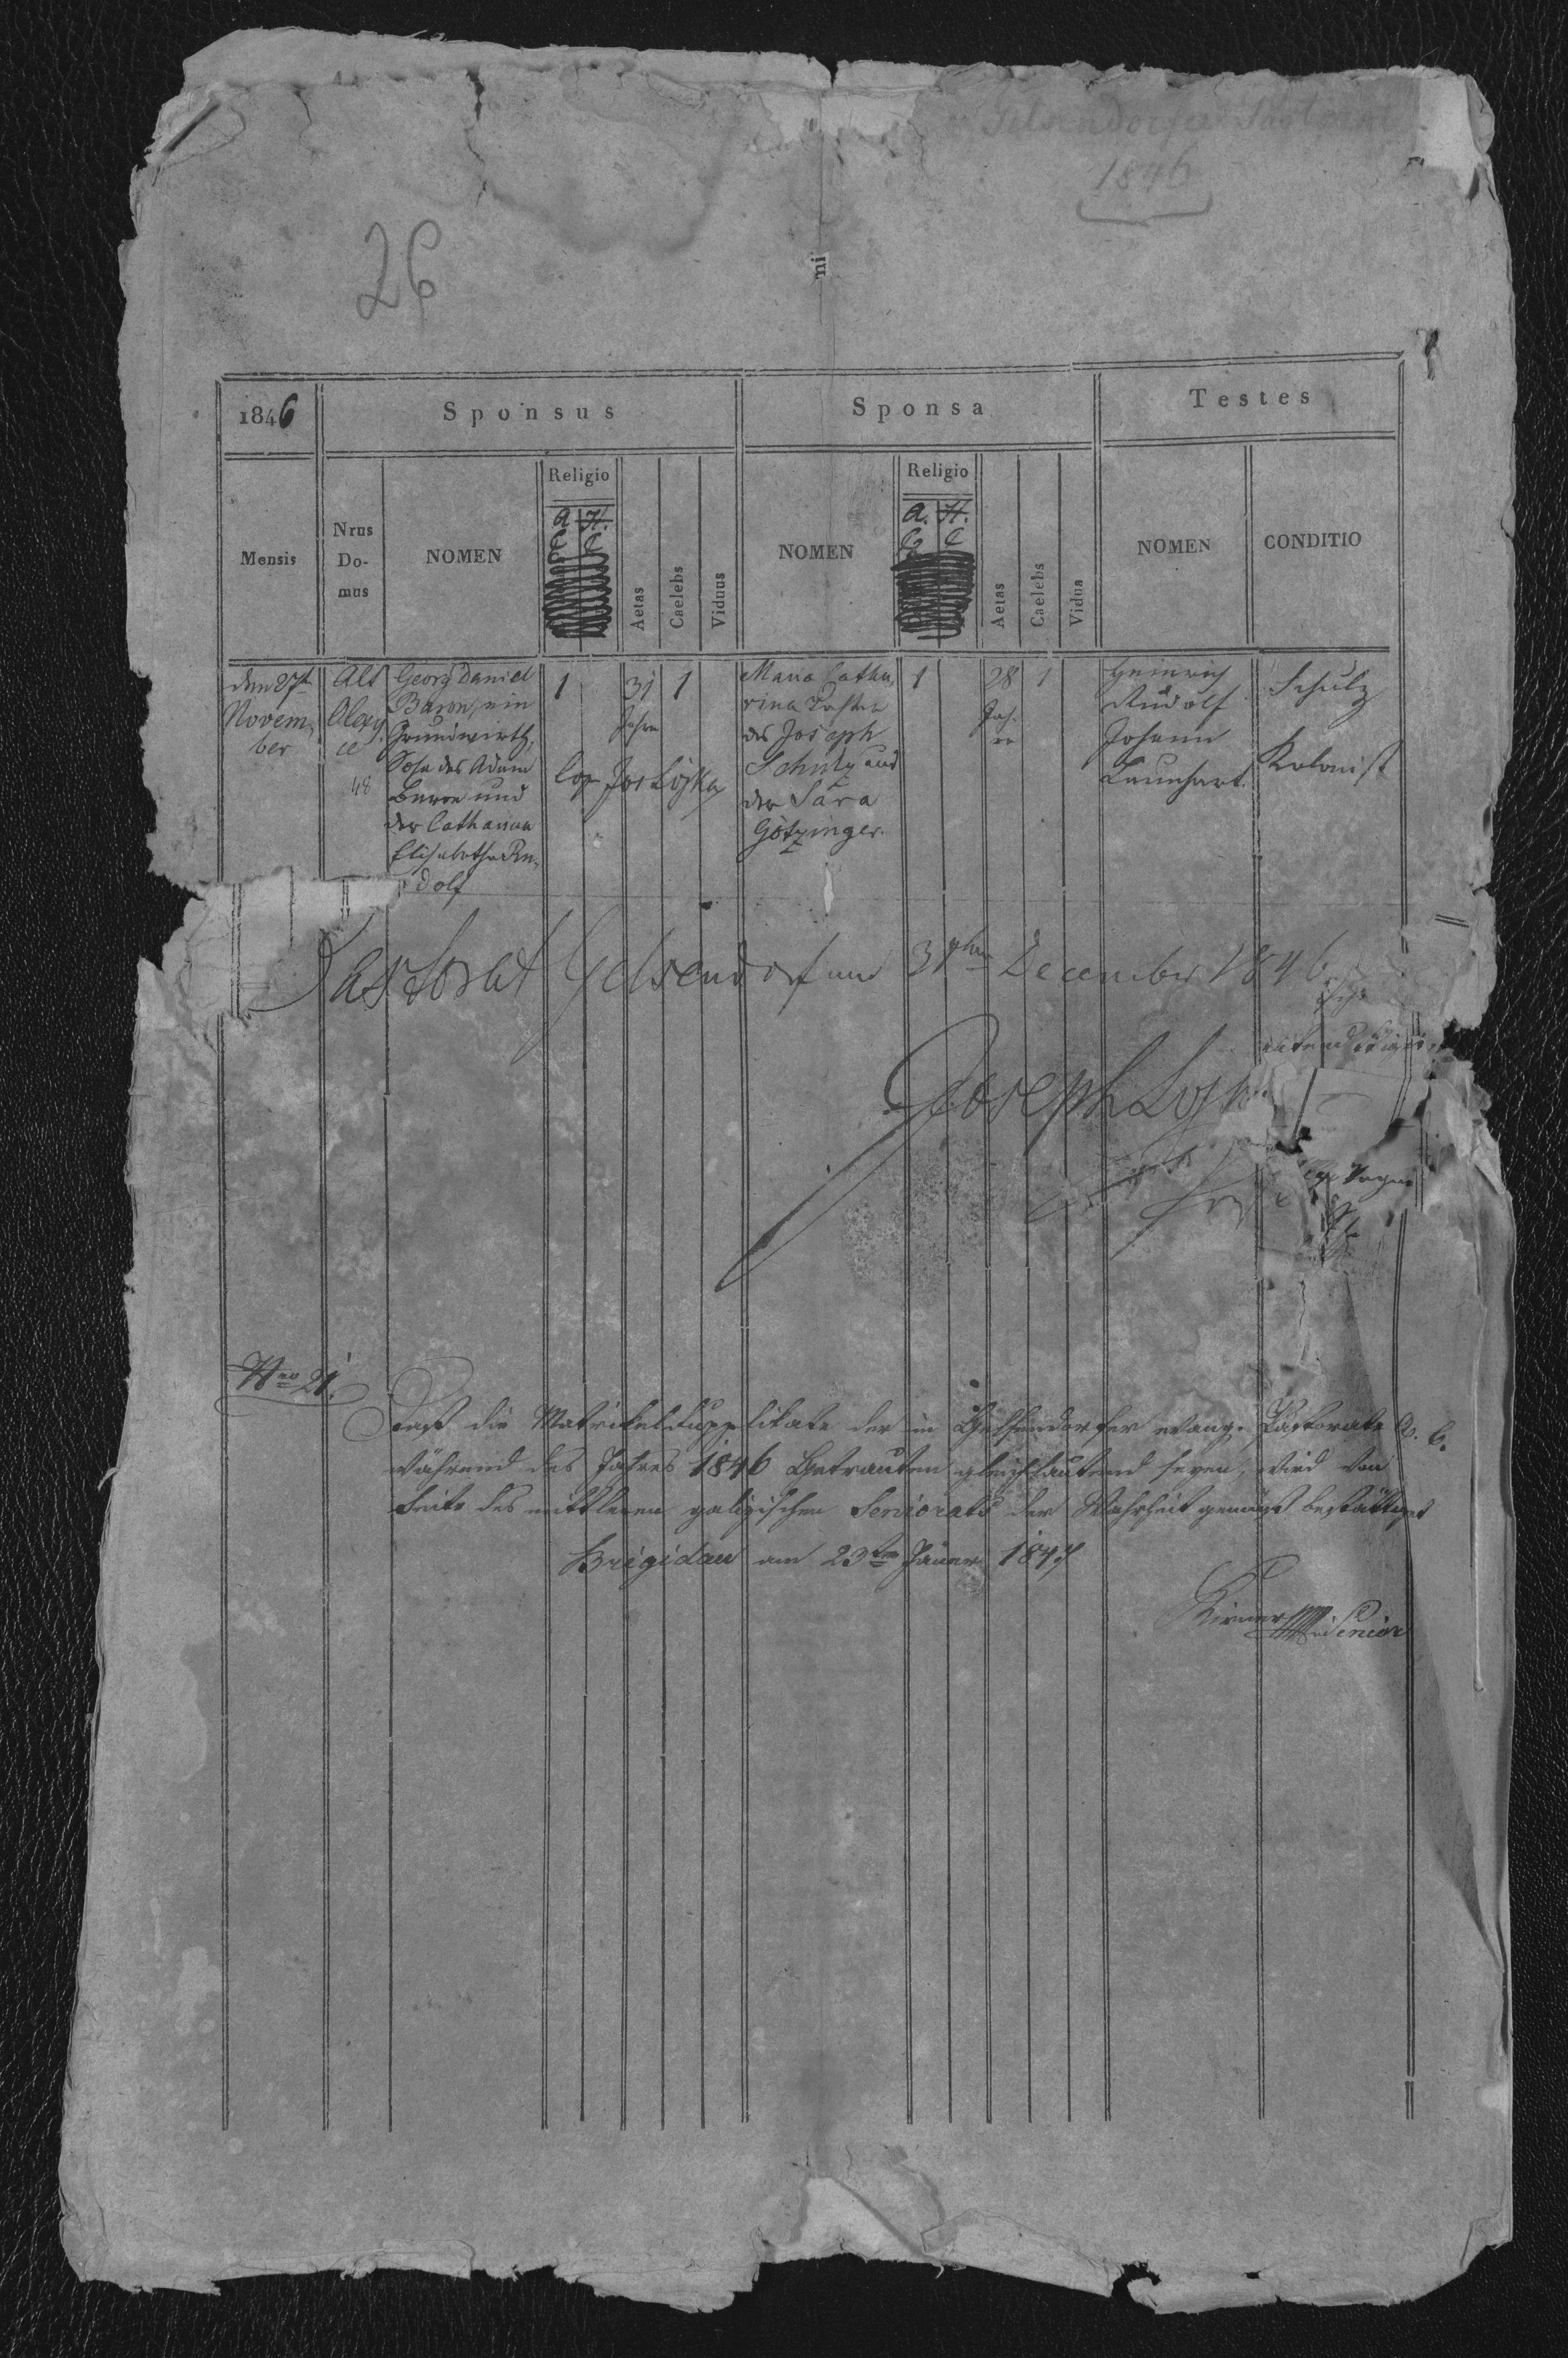 Gelsendorfer Pastorat
1846
26
mi
1846
Sponsus
Sponsa
Testes
Mensis
Nrus Do-mus
NOMEN
Religio
A. C.
H. C.
Aetas
Caelebs
Viduus
NOMEN
Religio
A. C.
H. C.
Aetas
Caelebs
Vidua
NOMEN
CONDITIO
den 27t
Novem-
ber
Alt
Olexy
ce
48
Georg Daniel
Baron, ein
Grundwirth,
Sohn des Adam
Baron und
der Catharina
Elisabetha Ru-
dolf
1
31
Jahre
1
Cop Jos Lojka
Maria Catha-
rina Tochter
des Joseph
Schulz und
der Sara
Götzinger.
1
28
Jah-
re
1
Heinrich
Rudolf
Johann
Launhart.
Schulz
Kolonist
Pastorat Gelsendorf am 31ten December 1846
Joseph Loj
Nro 21.
Daß die Matrikelduplikate der im Gelsendorfer evang. Pastorate A. C.
während des Jahres 1846 Getrauten gleichlautend seyen, wird von
Seite des mittleren galizischen Seniorats der Wahrheit gemäß bestättiget
Brigidau am 23ten Jäner 1847
Senior